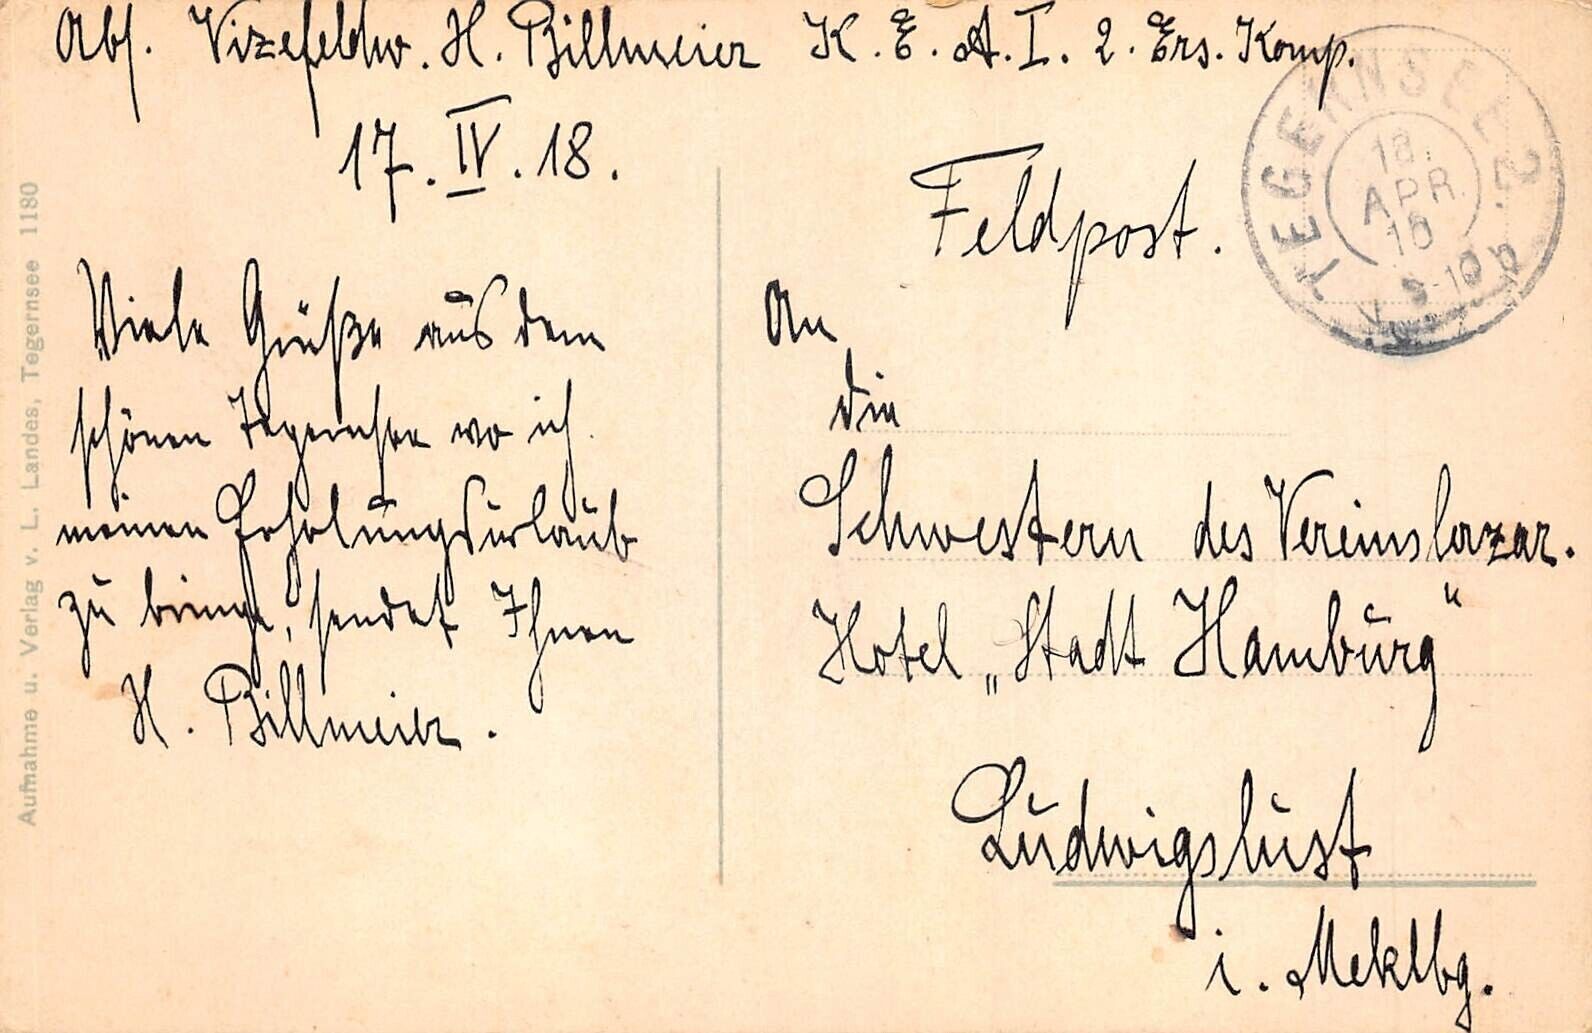 Abs. Vizefeldw. H. Billmeier K. E. A. I. 2. Ers. Komp.
17. IV. 18.
Viele Grüße aus dem
schönen Tegernsee wo ich
meinen Erholungsurlaub
zu bringe, sendet Ihnen
H. Billmeier.
Feldpost.
An
die
Schwestern des Vereinslazar.
Hotel „Stadt Hamburg“
Ludwigslust
i. Meklbg.
TEGERNSEE 2.
18.
APR.
18
V. 9-10
Aufnahme u. Verlag v. L. Landes, Tegernsee 1180